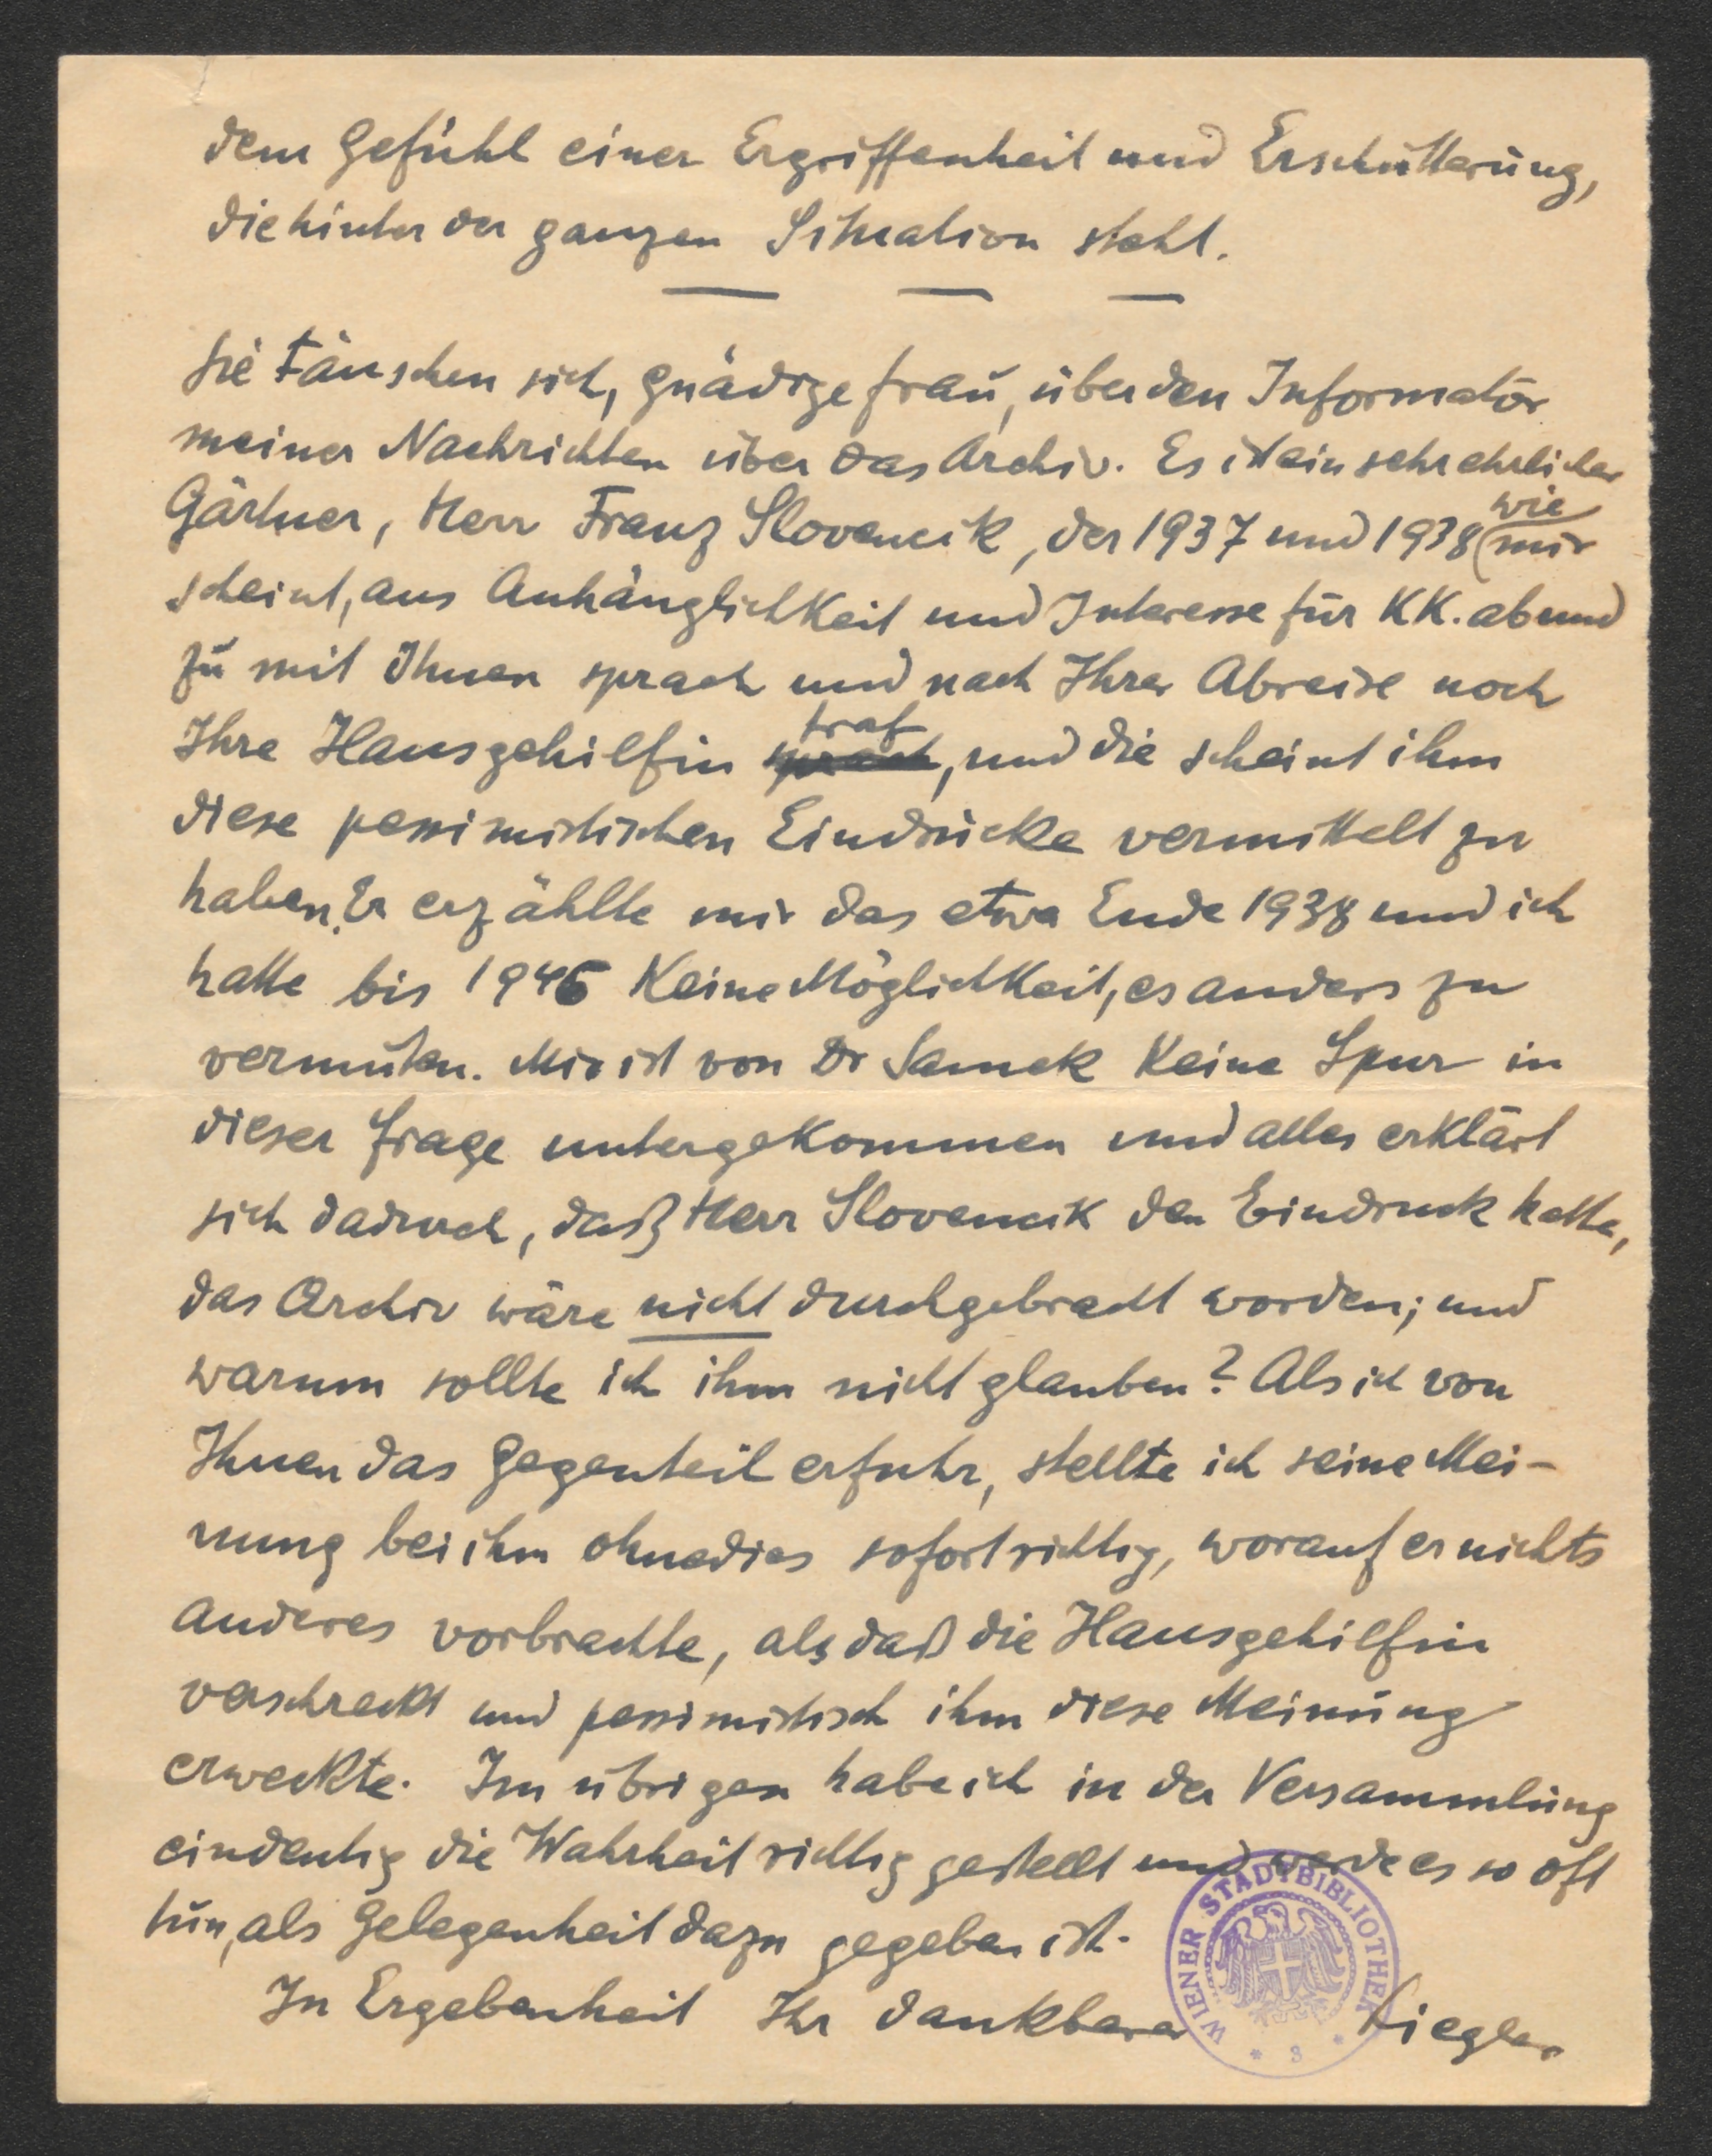 dem Gefühl einer Ergriffenheit und Erschütterung,
die hinter der ganzen Situation steht.
Sie täuschen sich, gnädige Frau, über den Informator
meiner Nachrichten über das Archiv. Es ist ein sehr ehrlicher
Gärtner, Herr Franz Slovencik, der 1937 und 1938 (wie mir
scheint, aus Anhänglichkeit und Interesse für KK. ab und
zu mit Ihnen sprach und nach Ihrer Abreise noch
Ihre Hausgehilfin sprach traf, und die scheint ihm
diese pessimistischen Eindrücke vermittelt zu
haben. Er erzählte mir das etwa Ende 1938 und ich
hatte bis 1946 keine Möglichkeit, es anders zu
vermuten. Mir ist von Dr Samek keine Spur in
dieser Frage untergekommen und alles erklärt
sich dadurch, daß Herr Slovencik den Eindruck hatte,
das Archiv wäre nicht durchgebracht worden; und
warum sollte ich ihm nicht glauben? Als ich von
Ihnen das Gegenteil erfuhr, stellte ich seine Mei-
nung bei ihm ohnedies sofort richtig, worauf er nichts
anderes vorbrachte, als daß die Hausgehilfin
verschreckt und pessimistisch ihm diese Meinung
erweckte. Im übrigen habe ich in der Versammlung
eindeutig die Wahrheit richtig gestellt und werde es so oft
tun, als Gelegenheit dazu gegeben ist.
In Ergebenheit Ihr dankbarer Kiegler
WIENER STADTBIBLIOTHEK
* 3 *